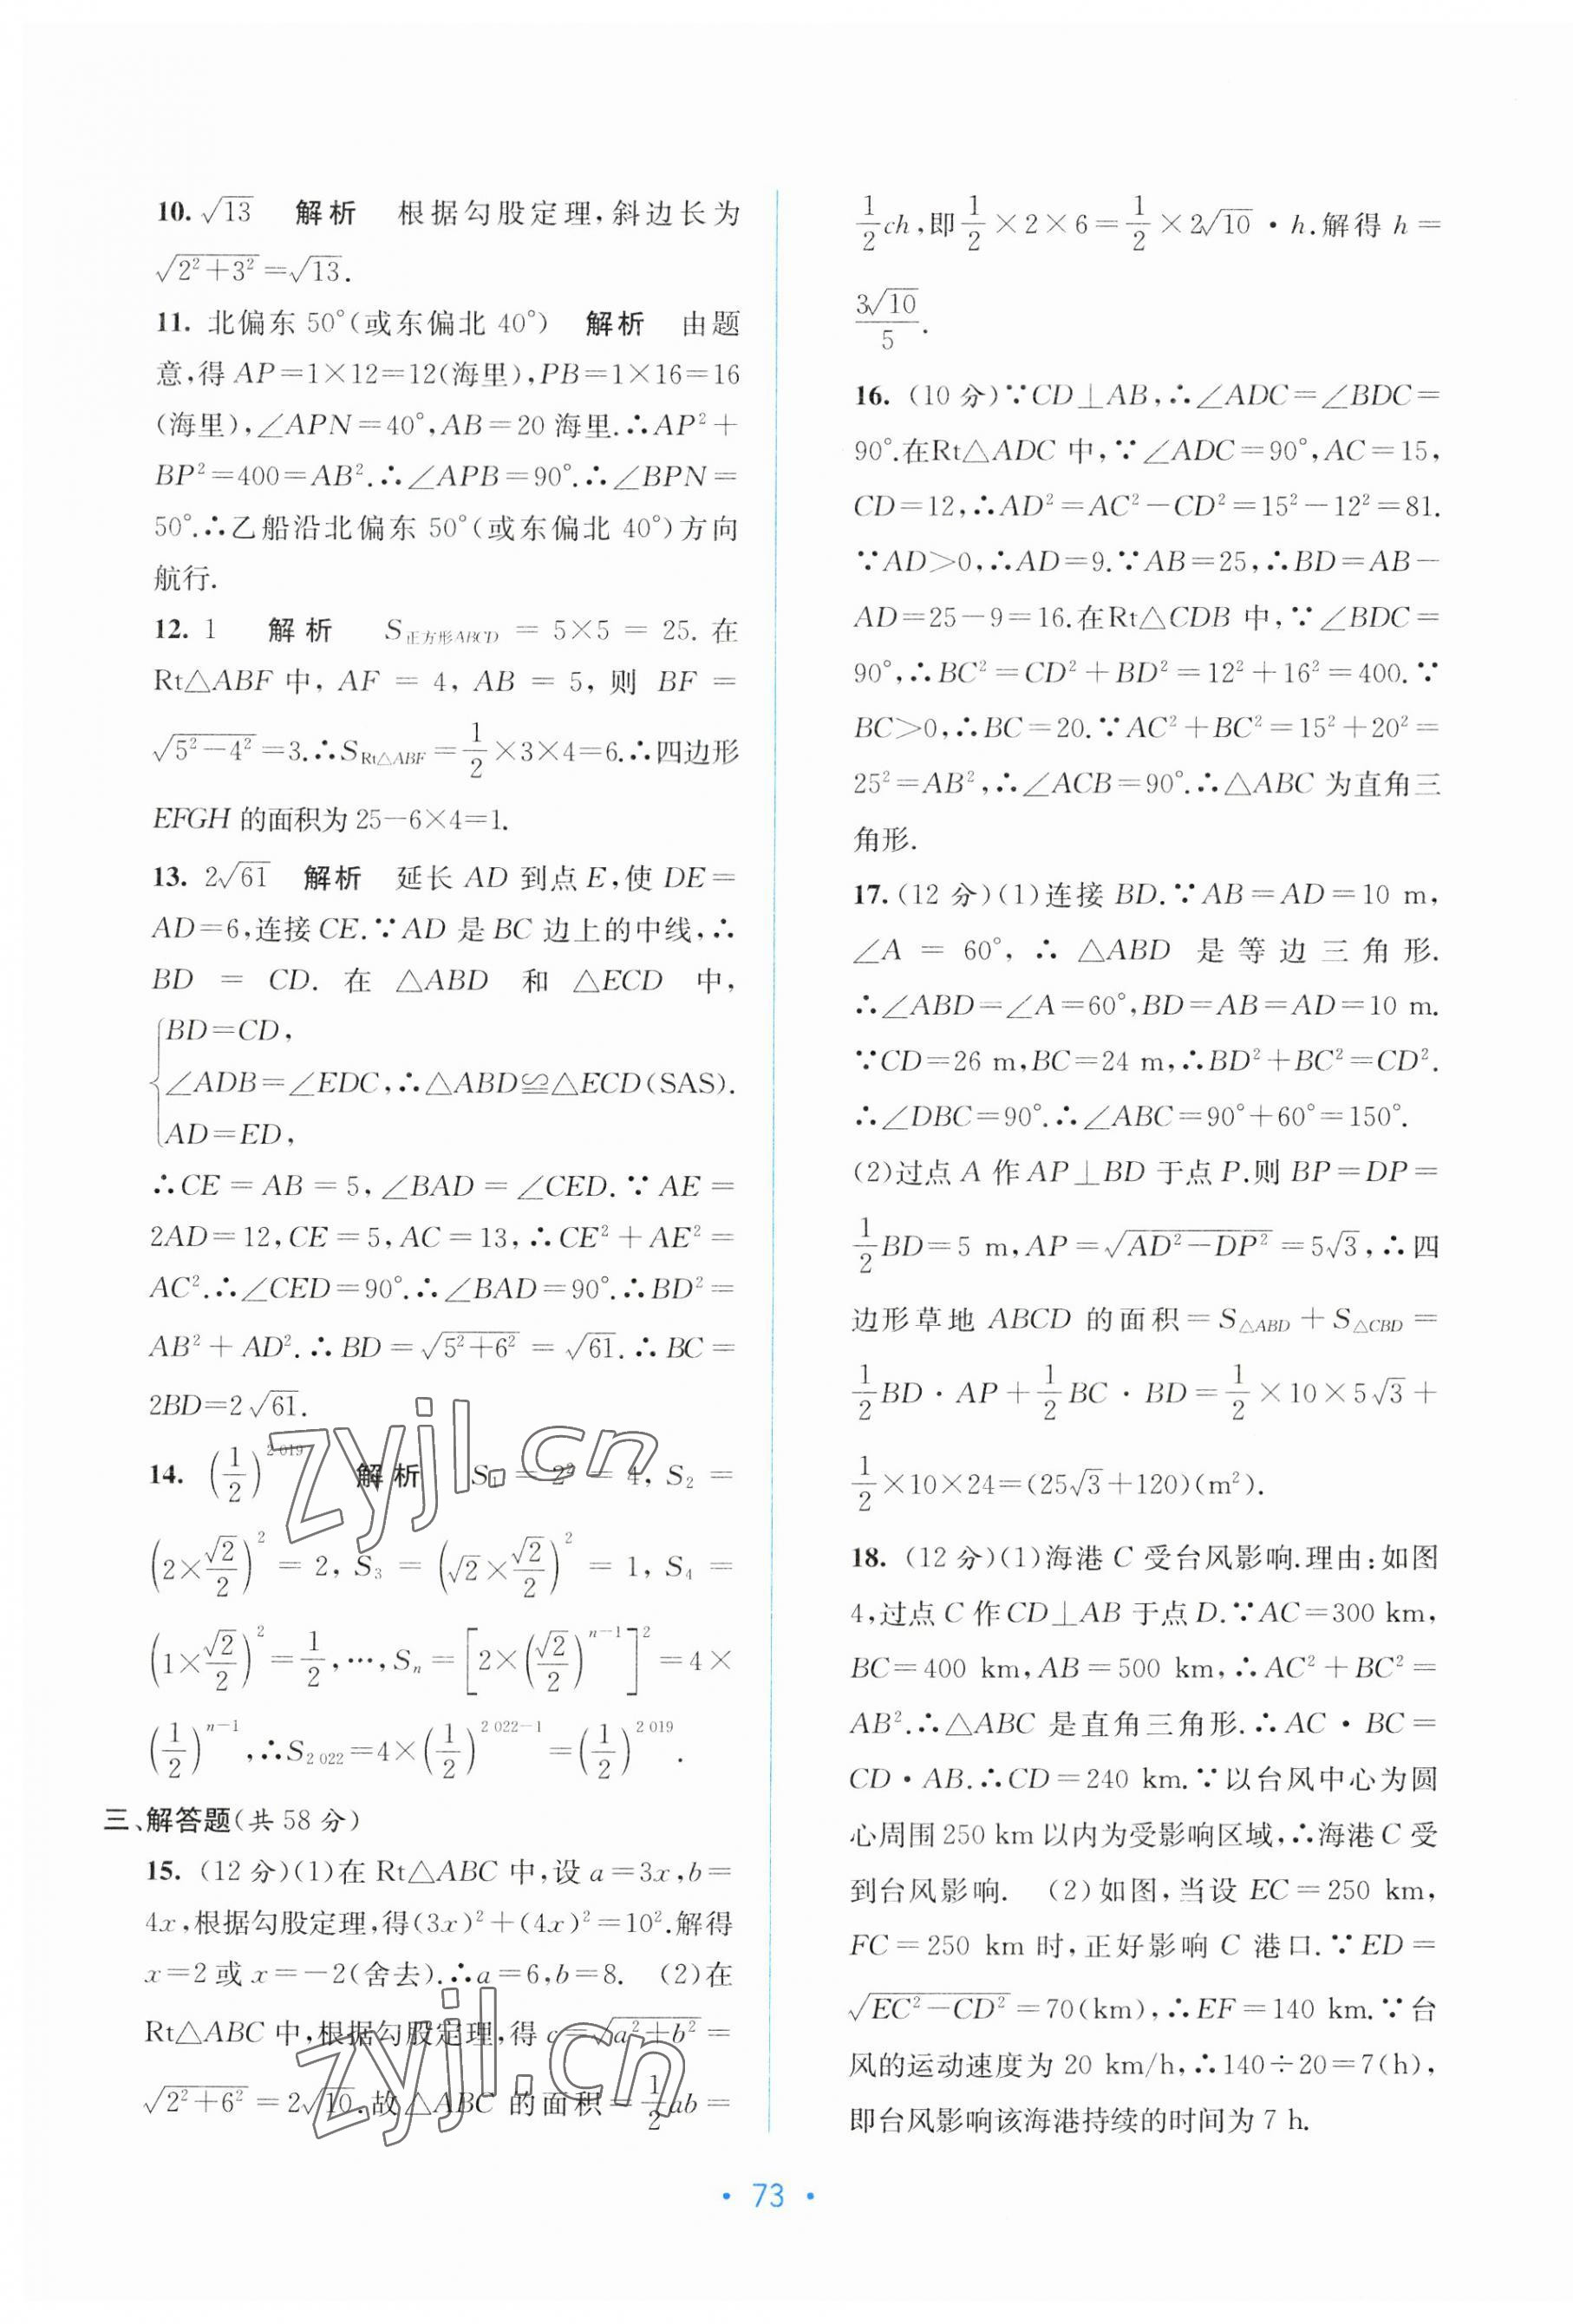 10. √13　解析　根据勾股定理,斜边长为
√(2²+3²)=√13.
11. 北偏东 50°(或东偏北 40°)　解析　由题
意,得 AP=1×12=12(海里),PB=1×16=16
(海里),∠APN=40°,AB=20 海里.∴AP²+
BP²=400=AB².∴∠APB=90°.∴∠BPN=
50°.∴乙船沿北偏东 50°(或东偏北 40°)方向
航行.
12. 1　解析　S正方形ABCD = 5×5 = 25. 在
Rt△ABF 中, AF = 4, AB = 5, 则 BF =
√(5²-4²)=3.∴S_Rt△ABF=1/2×3×4=6.∴四边形
EFGH 的面积为 25-6×4=1.
13. 2√61　解析　延长 AD 到点 E,使 DE=
AD=6,连接 CE.∵AD 是 BC 边上的中线,∴
BD = CD. 在 △ABD 和 △ECD 中,
BD=CD,
∠ADB=∠EDC,∴△ABD≌△ECD(SAS).
AD=ED,
∴CE=AB=5,∠BAD=∠CED.∵AE=
2AD=12,CE=5,AC=13,∴CE²+AE²=
AC².∴∠CED=90°.∴∠BAD=90°.∴BD²=
AB²+AD².∴BD=√(5²+6²)=√61.∴BC=
2BD=2√61.
14. (1/2)^2 019　解析　S₁ = 2² = 4, S₂ =
(2×√2/2)² = 2, S₃ = (√2×√2/2)² = 1, S₄ =
(1×√2/2)²=1/2,…,Sₙ=[2×(√2/2)^(n-1)]²=4×
(1/2)^(n-1),∴S₂ ₀₂₂=4×(1/2)^(2 022-1)=(1/2)^2 019.
三、解答题(共 58 分)
15. (12 分)(1)在 Rt△ABC 中,设 a=3x,b=
4x,根据勾股定理,得(3x)²+(4x)²=10².解得
x=2 或 x=-2(舍去).∴a=6,b=8.　(2)在
Rt△ABC 中,根据勾股定理,得 c=√(a²+b²)=
√(2²+6²)=2√10.故△ABC 的面积=1/2ab=
1/2ch,即1/2×2×6=1/2×2√10·h.解得 h=
3√10/5.
16. (10 分)∵CD⊥AB,∴∠ADC=∠BDC=
90°.在Rt△ADC 中,∵∠ADC=90°,AC=15,
CD=12,∴AD²=AC²-CD²=15²-12²=81.
∵AD>0,∴AD=9.∵AB=25,∴BD=AB-
AD=25-9=16.在Rt△CDB 中,∵∠BDC=
90°,∴BC²=CD²+BD²=12²+16²=400.∵
BC>0,∴BC=20.∵AC²+BC²=15²+20²=
25²=AB²,∴∠ACB=90°.∴△ABC 为直角三
角形.
17. (12 分)(1)连接 BD.∵AB=AD=10 m,
∠A = 60°, ∴ △ABD 是等边三角形.
∴∠ABD=∠A=60°,BD=AB=AD=10 m.
∵CD=26 m,BC=24 m,∴BD²+BC²=CD².
∴∠DBC=90°.∴∠ABC=90°+60°=150°.
(2)过点 A 作 AP⊥BD 于点 P.则 BP=DP=
1/2BD=5 m,AP=√(AD²-DP²)=5√3,∴四
边形草地 ABCD 的面积=S△ABD+S△CBD=
1/2BD·AP+1/2BC·BD=1/2×10×5√3+
1/2×10×24=(25√3+120)(m²).
18. (12 分)(1)海港 C 受台风影响.理由:如图
4,过点 C 作 CD⊥AB 于点 D.∵AC=300 km,
BC=400 km,AB=500 km,∴AC²+BC²=
AB².∴△ABC 是直角三角形.∴AC·BC=
CD·AB.∴CD=240 km.∵以台风中心为圆
心周围 250 km 以内为受影响区域,∴海港 C 受
到台风影响.　(2)如图,当设 EC=250 km,
FC=250 km 时,正好影响 C 港口.∵ED=
√(EC²-CD²)=70(km),∴EF=140 km.∵台
风的运动速度为 20 km/h,∴140÷20=7(h),
即台风影响该海港持续的时间为 7 h.
zyjl.cn
zyjl.cn
· 73 ·